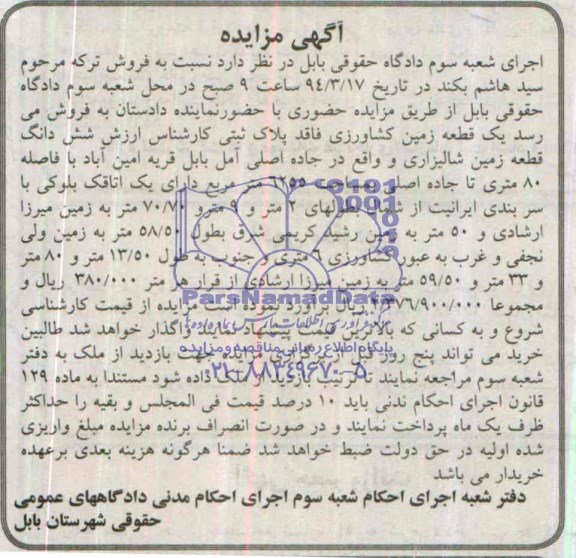 آگهی مزایده
اجرای شعبه سوم دادگاه حقوقی بابل در نظر دارد نسبت به فروش ترکه مرحوم
سید هاشم بکند در تاریخ ۹۴/۳/۱۷ ساعت ۹ صبح در محل شعبه سوم دادگاه
حقوقی بابل از طریق مزایده حضوری با حضورنماینده دادستان به فروش می
رسد یک قطعه زمین کشاورزی فاقد پلاک ثبتی کارشناس ارزش شش دانگ
قطعه زمین شالیزاری و واقع در جاده اصلی آمل بابل قریه امین آباد با فاصله
۸۰ متری تا جاده اصلی متر مربع دارای یک اتاقک بلوکی با
سر بندی ایرانیت از شمال بطولهای ۲ متر و ۹ مترو ۷۰/۷۰ متر به زمین میرزا
ارشادی و ۵۰ متر به زمین رشید کریمی شرق بطول ۵۸/۵۰ متر به زمین ولی
نجفی و غرب به عبور کشاورزی ۶ متری و جنوب به طول ۱۳/۵۰ متر و ۸۰ متر
و ۳۳ متر و ۵۹/۵۰ متر به زمین میرزا ارشادی از قرار هر متر ۳۸۰/۰۰۰ ریال و
مجموعا ریال برآورد نموده است مزایده از قیمت کارشناسی
شروع و به کسانی که بالاترین قیمت پیشنهاد نمایند واگذار خواهد شد طالبین
خرید می تواند پنج روز قبل از برگزاری مزایده جهت بازدید از ملک به دفتر
شعبه سوم مراجعه نمایند تا ترتیب بازدید از ملک داده شود مستندا به ماده ۱۲۹
قانون اجرای احکام ندنی باید ۱۰ درصد قیمت فی المجلس و بقیه را حداکثر
ظرف یک ماه پرداخت نمایند و در صورت انصراف برنده مزایده مبلغ واریزی
شده اولیه در حق دولت ضبط خواهد شد ضمنا هرگونه هزینه بعدی برعهده
خریدار می باشد
دفتر شعبه اجرای احکام شعبه سوم اجرای احکام مدنی دادگاههای عمومی
حقوقی شهرستان بابل
ParsNamadData
پایگاه اطلاع رسانی مناقصه و مزایده
۰۲۱-۸۸۳۴۹۶۷۰-۵